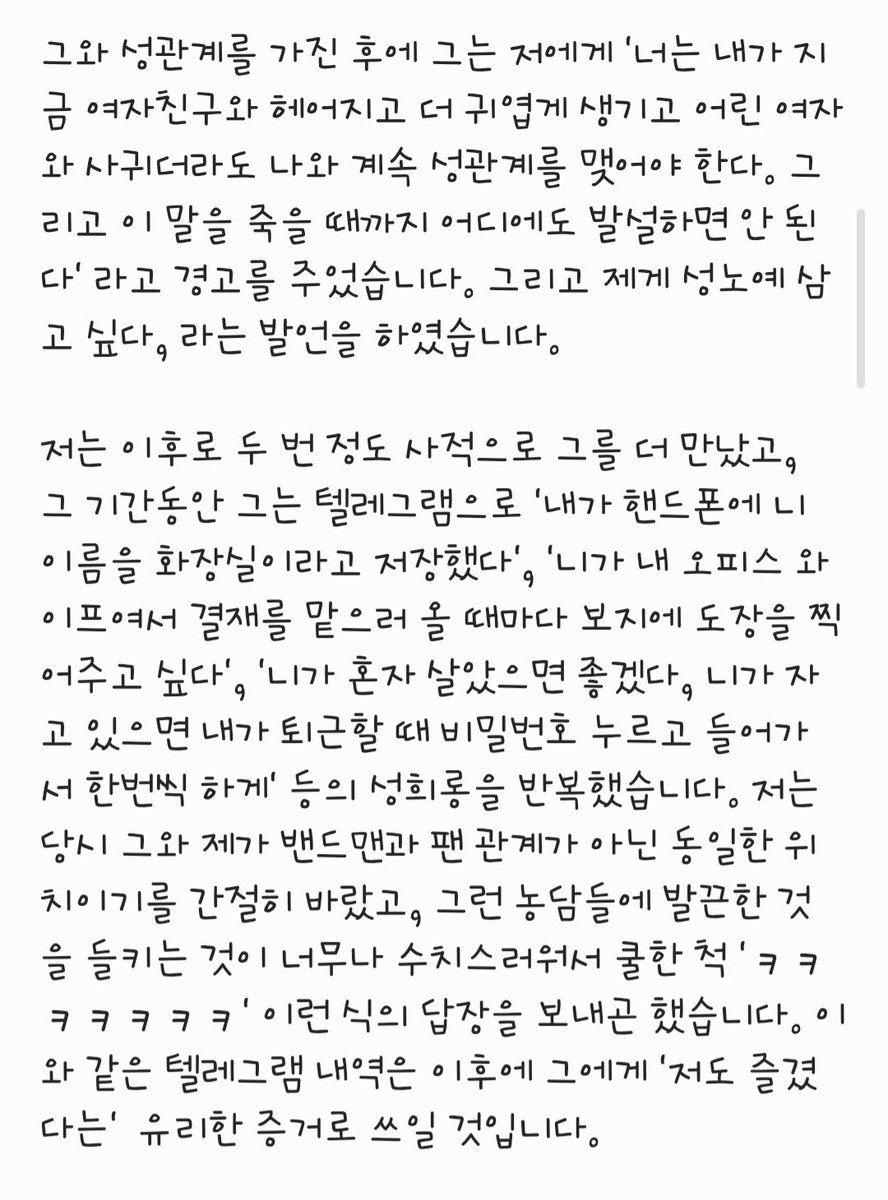 그와 성관계를 가진 후에 그는 저에게 '너는 내가 지
금 여자친구와 헤어지고 더 귀엽게 생기고 어린 여자
와 사귀더라도 나와 계속 성관계를 맺어야 한다. 그
리고 이 말을 죽을 때까지 어디에도 발설하면 안 된
다' 라고 경고를 주었습니다. 그리고 제게 성노예 삼
고 싶다, 라는 발언을 하였습니다.
저는 이후로 두 번 정도 사적으로 그를 더 만났고,
그 기간동안 그는 텔레그램으로 '내가 핸드폰에 니
이름을 화장실이라고 저장했다', '니가 내 오피스 와
이프여서 결재를 맡으러 올 때마다 보지에 도장을 찍
어주고 싶다', '니가 혼자 살았으면 좋겠다, 니가 자
고 있으면 내가 퇴근할 때 비밀번호 누르고 들어가
서 한번씩 하게' 등의 성희롱을 반복했습니다. 저는
당시 그와 제가 밴드맨과 팬 관계가 아닌 동일한 위
치이기를 간절히 바랐고, 그런 농담들에 발끈한 것
을 들키는 것이 너무나 수치스러워서 쿨한 척 'ㅋㅋ
ㅋㅋㅋㅋㅋ' 이런 식의 답장을 보내곤 했습니다. 이
와 같은 텔레그램 내역은 이후에 그에게 '저도 즐겼
다는' 유리한 증거로 쓰일 것입니다.